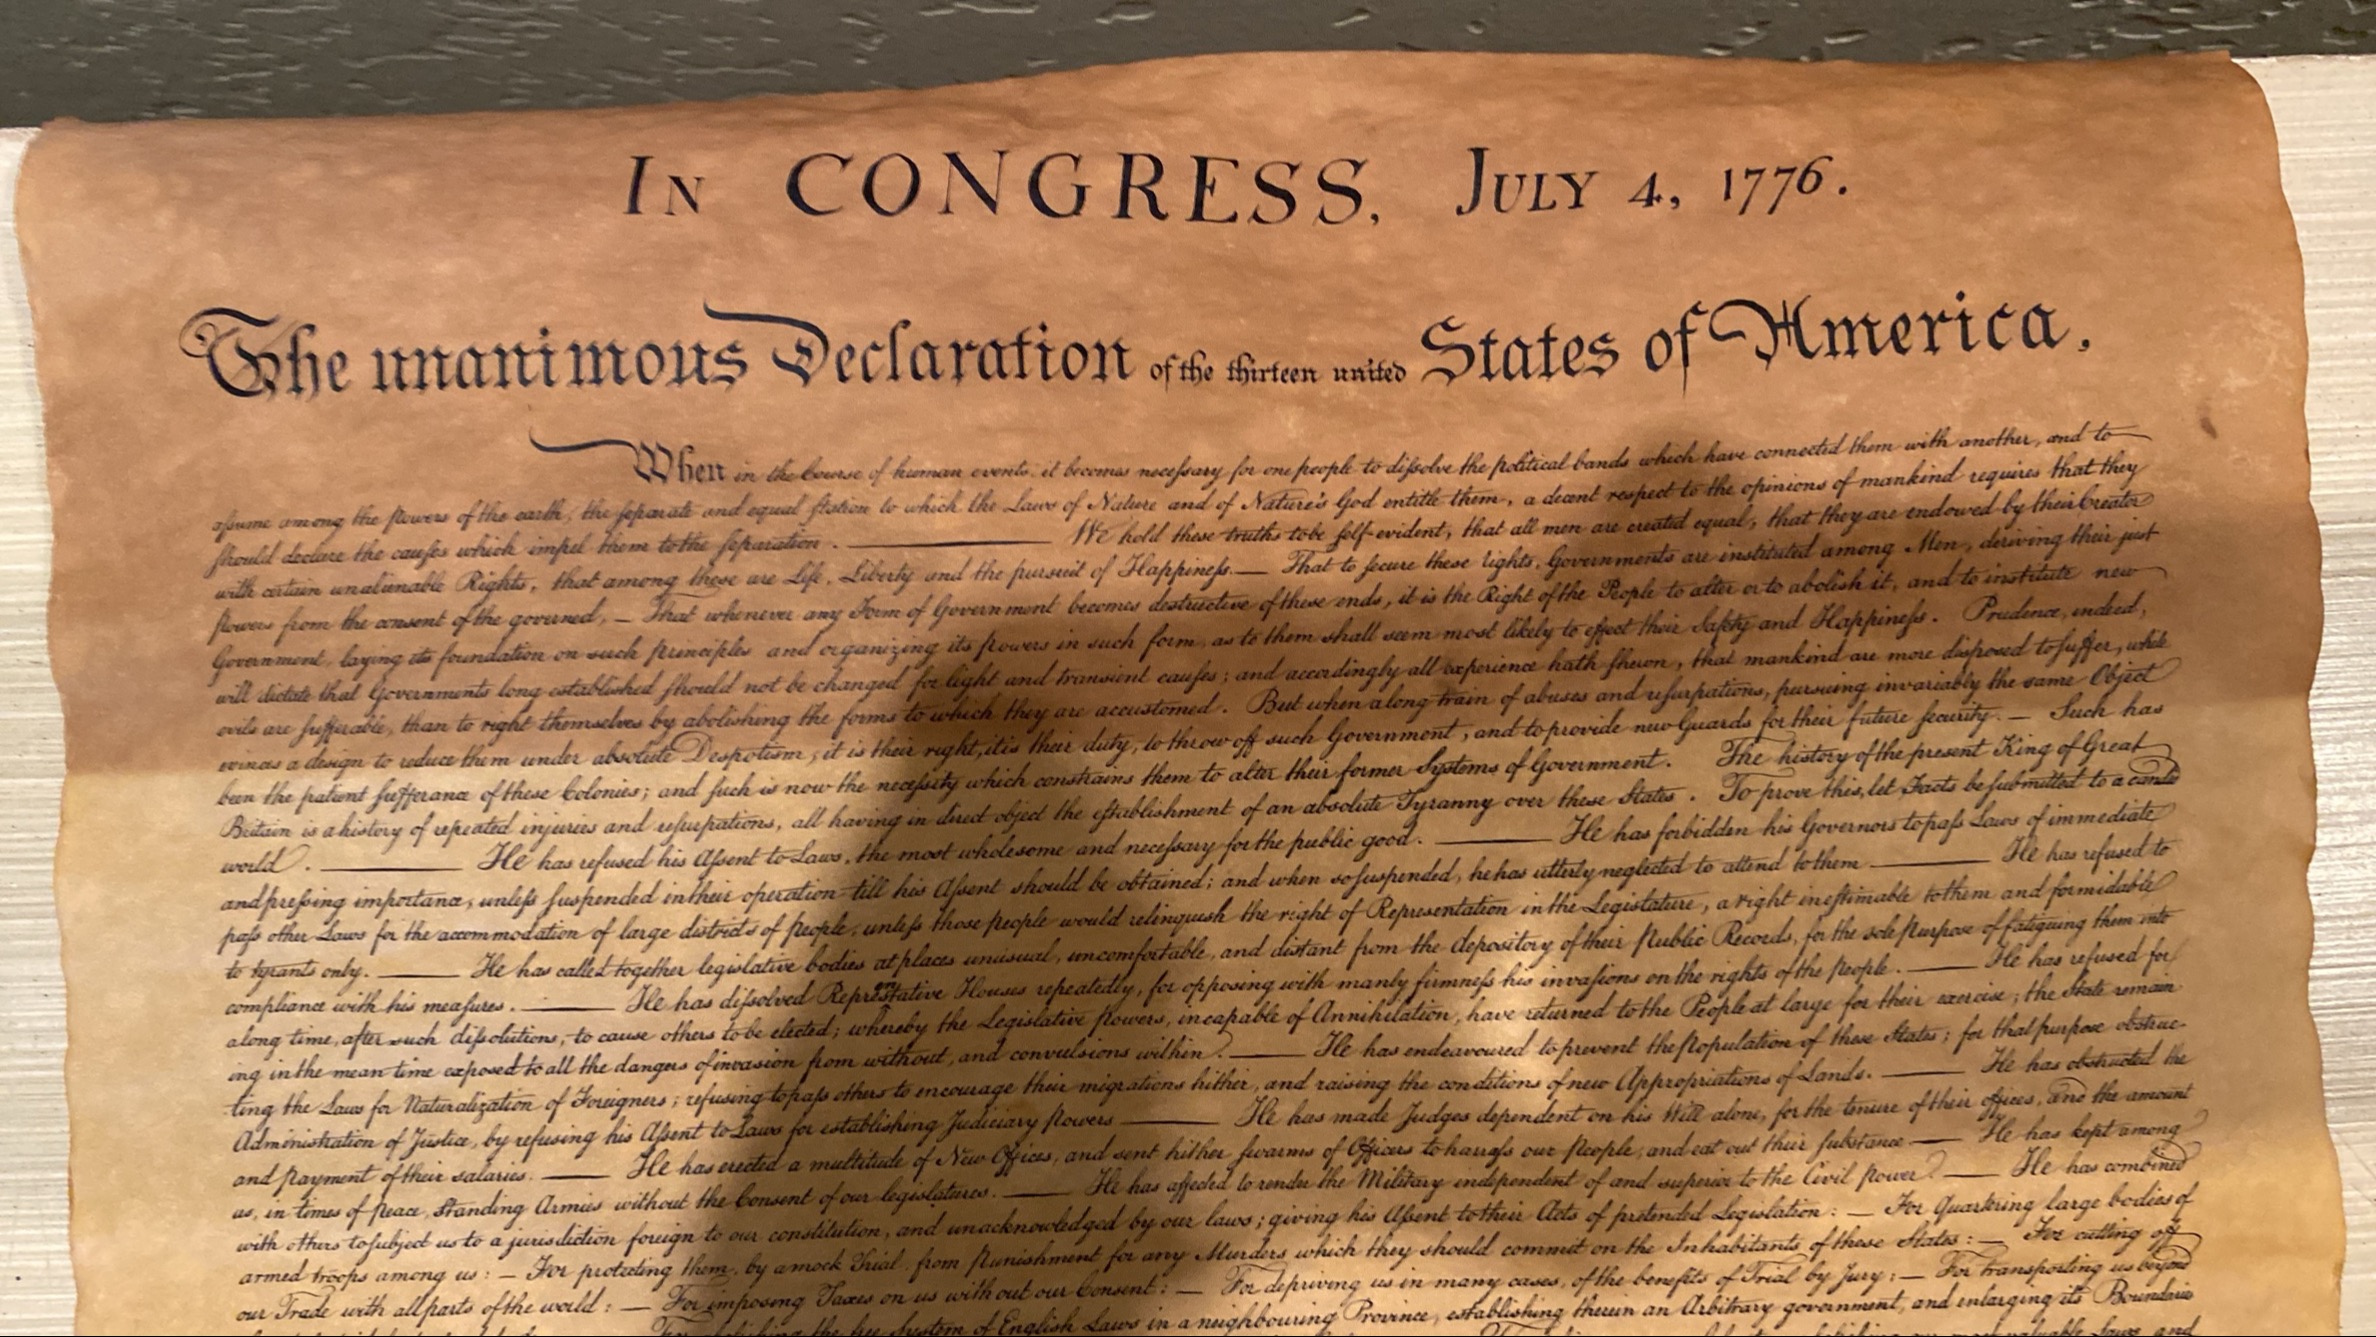 IN CONGRESS, JULY 4, 1776.
The unanimous Declaration of the thirteen united States of America.
When in the Course of human events, it becomes necessary for one people to dissolve the political bands which have connected them with another, and to
assume among the powers of the earth, the separate and equal station to which the Laws of Nature and of Nature's God entitle them, a decent respect to the opinions of mankind requires that they
should declare the causes which impel them to the separation. — We hold these truths to be self-evident, that all men are created equal, that they are endowed by their Creator
with certain unalienable Rights, that among these are Life, Liberty and the pursuit of Happiness. — That to secure these rights, Governments are instituted among Men, deriving their just
powers from the consent of the governed, — That whenever any Form of Government becomes destructive of these ends, it is the Right of the People to alter or to abolish it, and to institute new
Government, laying its foundation on such principles and organizing its powers in such form, as to them shall seem most likely to effect their Safety and Happiness. Prudence, indeed,
will dictate that Governments long established should not be changed for light and transient causes; and accordingly all experience hath shewn, that mankind are more disposed to suffer, while
evils are sufferable, than to right themselves by abolishing the forms to which they are accustomed. But when a long train of abuses and usurpations, pursuing invariably the same Object
evinces a design to reduce them under absolute Despotism, it is their right, it is their duty, to throw off such Government, and to provide new Guards for their future security. — Such has
been the patient sufferance of these Colonies; and such is now the necessity which constrains them to alter their former Systems of Government. The history of the present King of Great
Britain is a history of repeated injuries and usurpations, all having in direct object the establishment of an absolute Tyranny over these States. To prove this, let Facts be submitted to a candid
world. — He has refused his Assent to Laws, the most wholesome and necessary for the public good. — He has forbidden his Governors to pass Laws of immediate
and pressing importance, unless suspended in their operation till his Assent should be obtained; and when so suspended, he has utterly neglected to attend to them — He has refused to
pass other Laws for the accommodation of large districts of people, unless those people would relinquish the right of Representation in the Legislature, a right inestimable to them and formidable
to tyrants only. — He has called together legislative bodies at places unusual, uncomfortable, and distant from the depository of their Public Records, for the sole purpose of fatiguing them into
compliance with his measures. — He has dissolved Representative Houses repeatedly, for opposing with manly firmness his invasions on the rights of the people. — He has refused for
a long time, after such dissolutions, to cause others to be elected; whereby the Legislative powers, incapable of Annihilation, have returned to the People at large for their exercise; the State remain
ing in the mean time exposed to all the dangers of invasion from without, and convulsions within. — He has endeavoured to prevent the population of these States; for that purpose obstruc-
ting the Laws for Naturalization of Foreigners; refusing to pass others to encourage their migrations hither, and raising the conditions of new Appropriations of Lands. — He has obstructed the
Administration of Justice, by refusing his Assent to Laws for establishing Judiciary powers — He has made Judges dependent on his Will alone, for the tenure of their offices, and the amount
and payment of their salaries. — He has erected a multitude of New Offices, and sent hither swarms of Officers to harrass our people, and eat out their substance — He has kept among
us, in times of peace, Standing Armies without the Consent of our legislatures. — He has affected to render the Military independent of and superior to the Civil power. — He has combined
with others to subject us to a jurisdiction foreign to our constitution, and unacknowledged by our laws; giving his Assent to their Acts of pretended Legislation: — For Quartering large bodies of
armed troops among us: — For protecting them, by a mock Trial, from punishment for any Murders which they should commit on the Inhabitants of these States: — For cutting off
our Trade with all parts of the world: — For imposing Taxes on us without our Consent: — For depriving us in many cases, of the benefits of Trial by Jury: — For transporting us beyond
For abolishing the free System of English Laws in a neighbouring Province, establishing therein an Arbitrary government, and enlarging its Boundaries
most valuable Laws, and